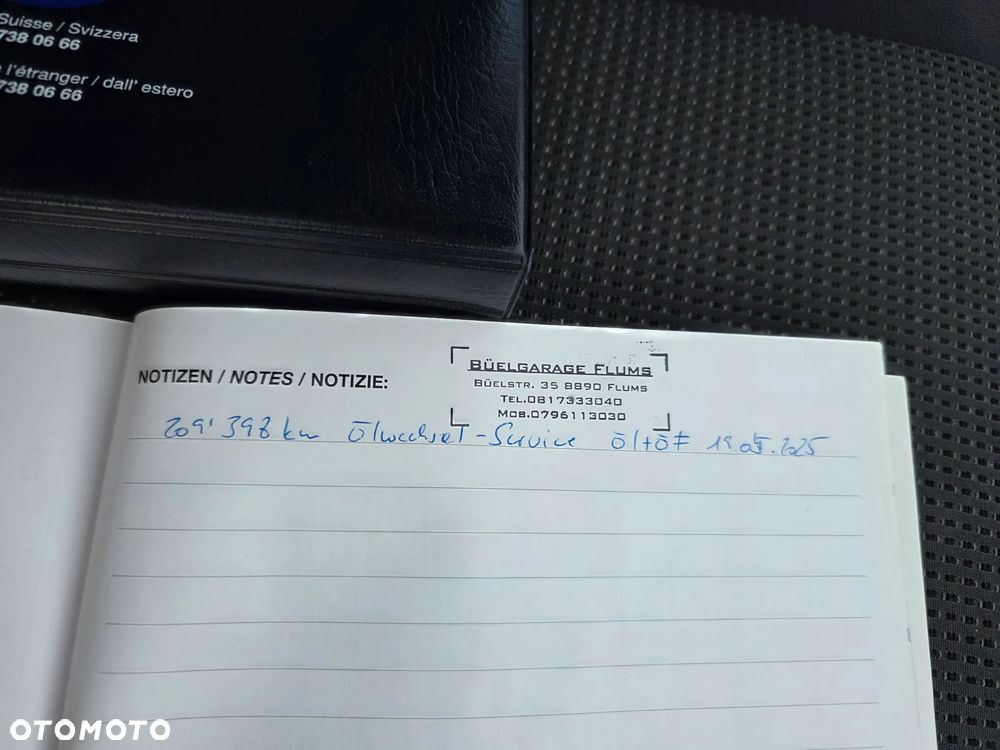 Suisse / Svizzera
738 06 66
l'étranger / dall' estero
738 06 66
NOTIZEN / NOTES / NOTIZIE:
BÜELGARAGE FLUMS
BÜELSTR. 35 8890 FLUMS
TEL.0817333040
MOB.0796113030
209'398 km Ölwechsel-Service Öl+ÖF 19.05.2025
OTOMOTO